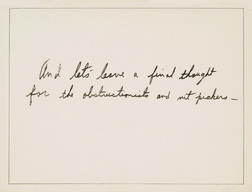 And let's leave a final thought
for the obstructionists and nit pickers —